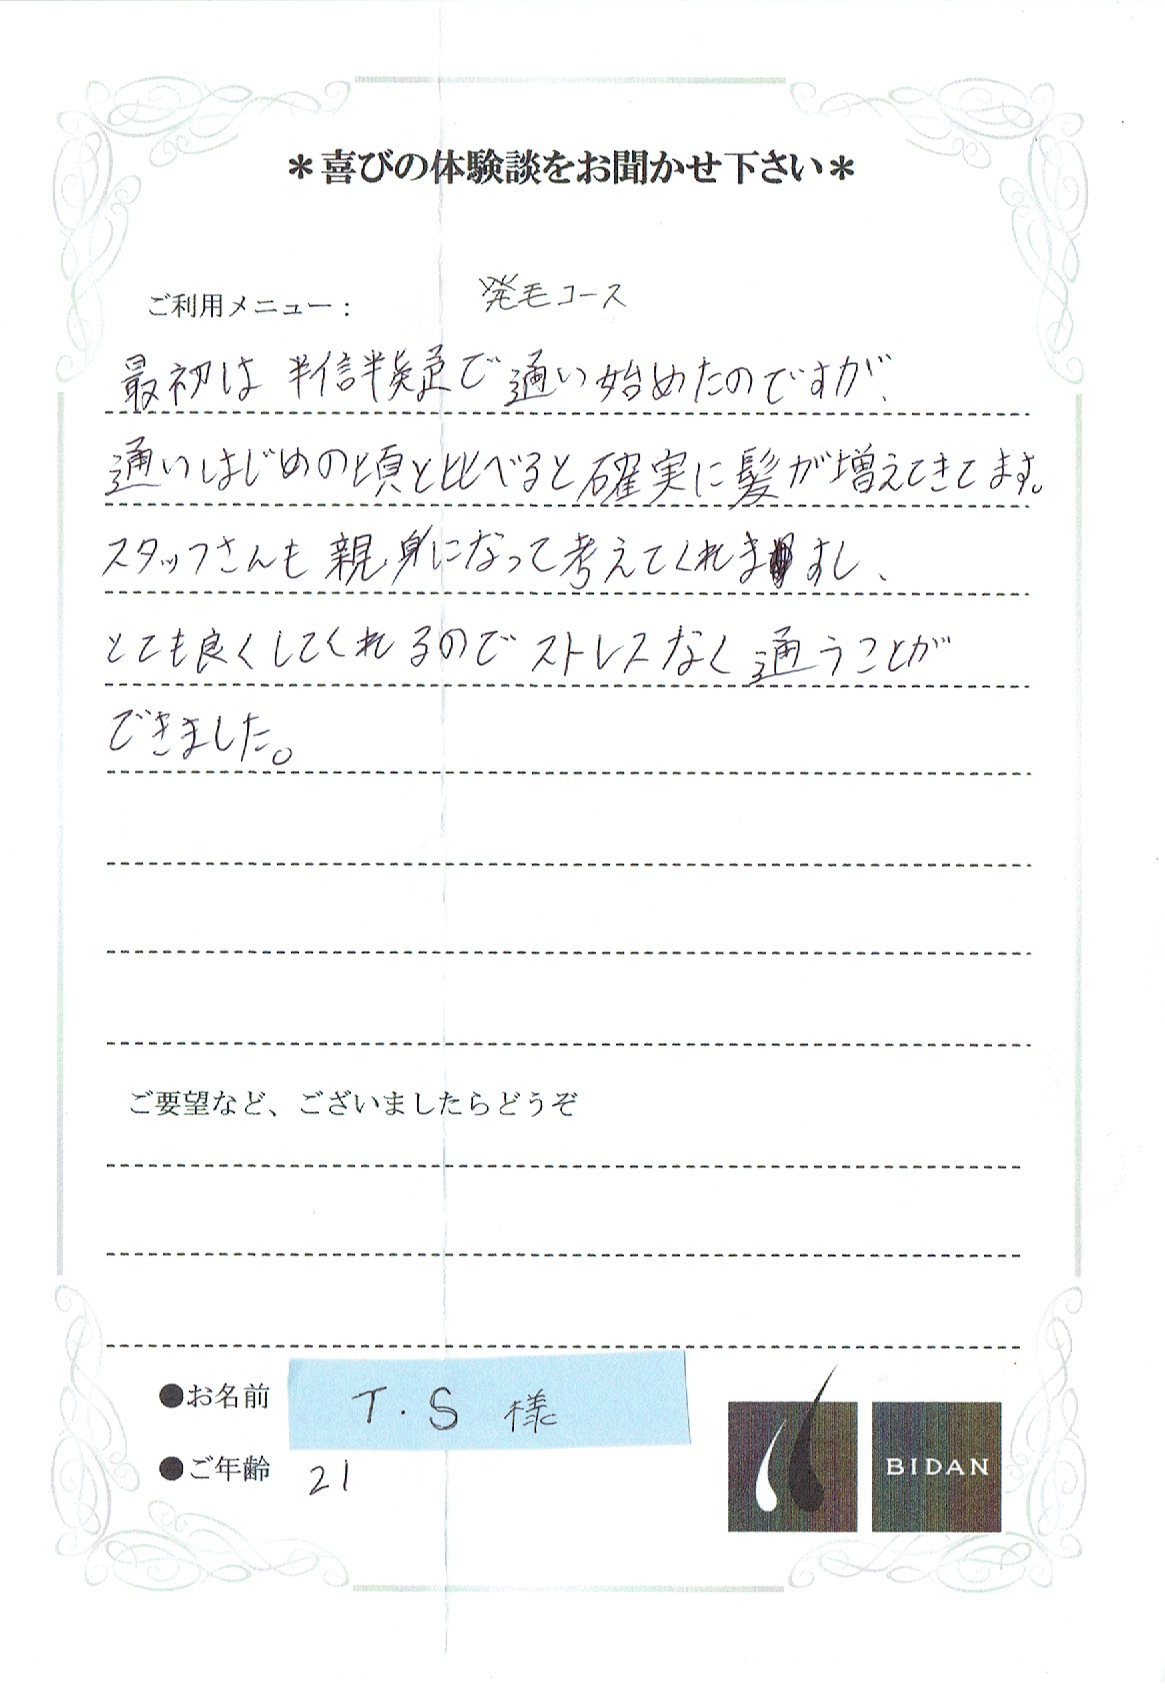 ＊喜びの体験談をお聞かせ下さい＊
ご利用メニュー： 発毛コース
最初は半信半疑で通い始めたのですが、
通いはじめの頃と比べると確実に髪が増えてきてます。
スタッフさんも親身になって考えてくれますし、
とても良くしてくれるのでストレスなく通うことが
できました。
ご要望など、ございましたらどうぞ
●お名前 T.S 様
●ご年齢 21
BIDAN